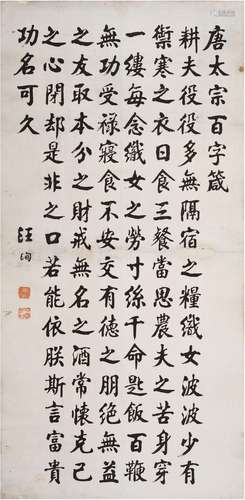 唐太宗百字箴
耕夫役役多無隔宿之糧織女波波少有
禦寒之衣日食三餐當思農夫之苦身穿
一縷每念織女之勞寸絲千命匙飯百鞭
無功受祿寢食不安交有德之朋絕無益
之友取本分之財戒無名之酒常懷克己
之心閉却是非之口若能依朕斯言富貴
功名可久
汪洵